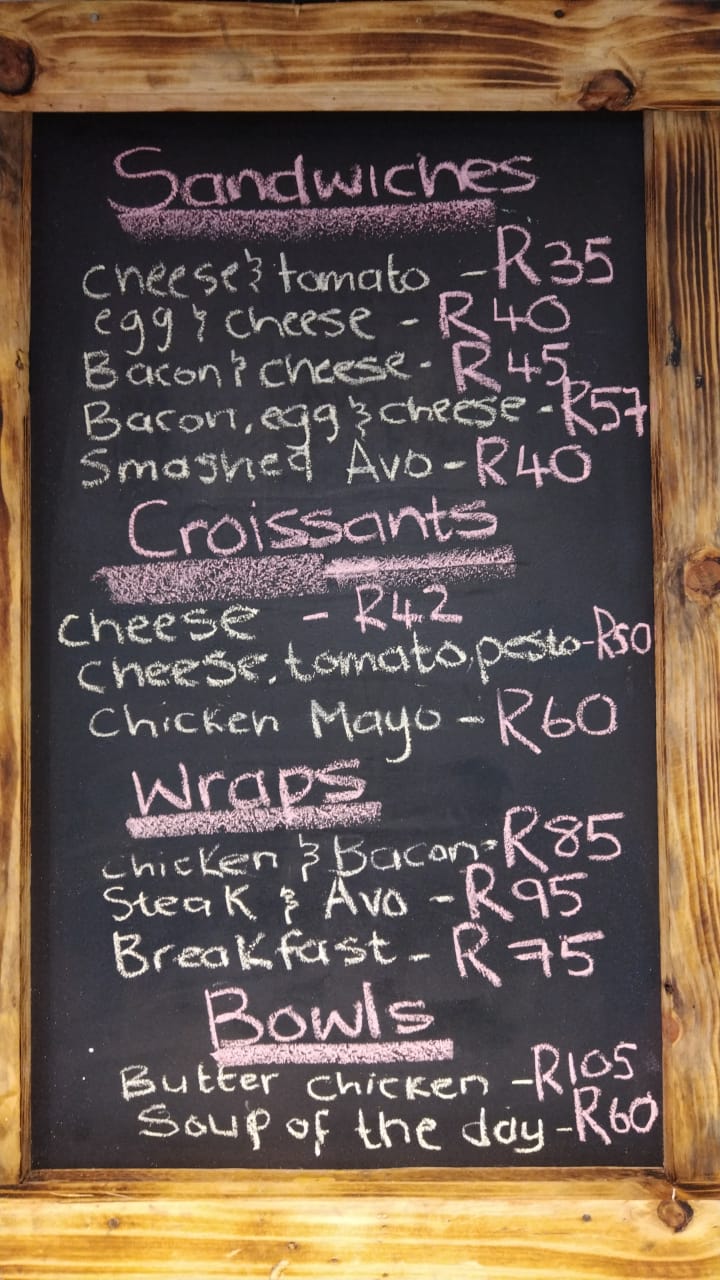 Sandwiches
cheese & tomato - R35
egg & cheese - R40
Bacon & cheese - R45
Bacon, egg & cheese - R57
Smashed Avo - R40
Croissants
cheese - R42
cheese, tomato, pesto - R50
Chicken Mayo - R60
Wraps
chicken & Bacon - R85
Steak & Avo - R95
Breakfast - R75
Bowls
Butter chicken - R105
Soup of the day - R60